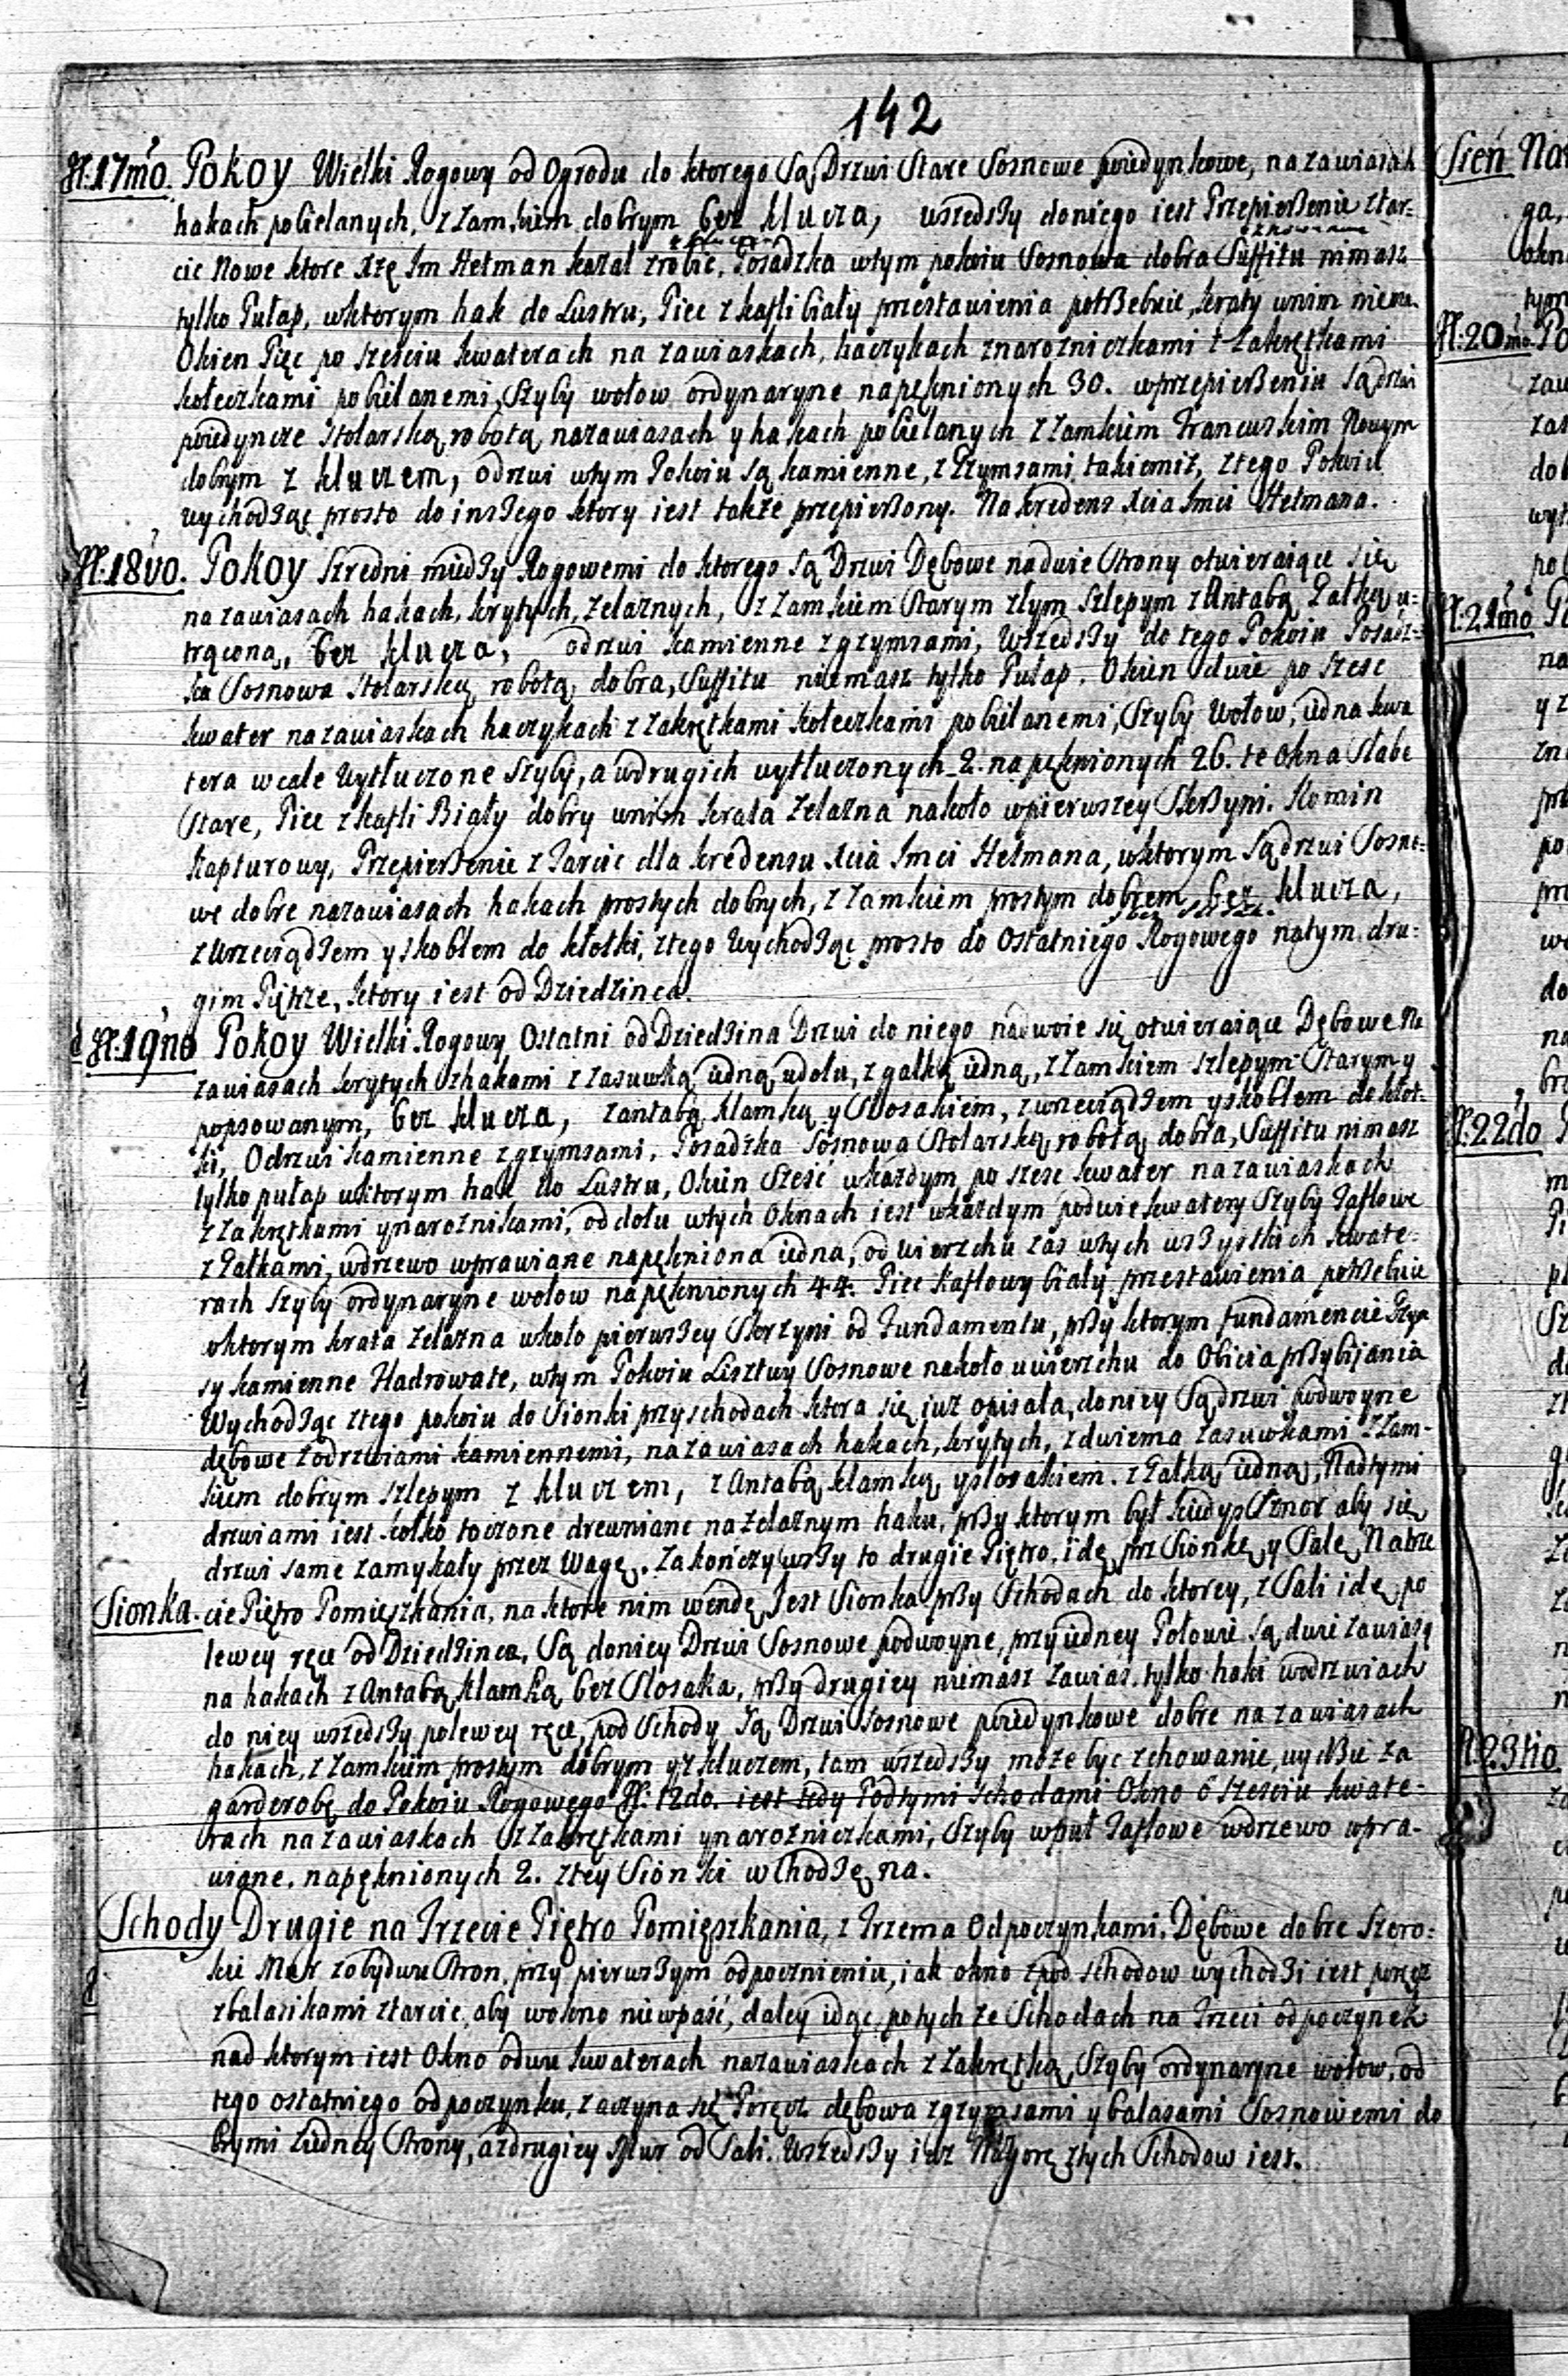 142
N: 17mo. Pokoy Wielki Rogowy od Ogrodu do ktorego Są Drzwi Stare Sosnowe poiedynkowe, na zawiasah
hakach pobielanych, z zamkiem dobrym bez klucza, wszedszy doniego iest Przepierzenie ztar:
cic Nowe ktore Xżę Im Hetman kazał zrobic, Posadzka wtym pokoiu Sosnowa dobra Suffitu nimasz
tylko Pułap, wktorym hak do Lustru, Piec z kafli biały przestawienia potrzebuie, kraty wnim niema
Okien Pięc po szesciu kwaterach na zawiaskach, haczykach znarozniczkami z zakrętkami
kołeczkami pobielanemi, Szyby wołow ordynaryne napęknionych 30. wprzepierzeniu są drzwi
poiedyncze Stolarską robotą nazawiasach y hakach pobielanych z zamkiem Francuskim Nowym
dobrym z kluczem, odrzwi wtym Pokoiu są kamienne, z Gzymsami takiemiż, ztego Pokoiu
wychodząc prosto do inszego ktory iest także przepierzony. Na kredens Xcia Imci Hetmana.
N: 18vo. Pokoy Szredni miedzy Rogowemi do ktorego są Drzwi Dębowe nadwie Strony otwieraiące się
na zawiasach hakach, krytych, żelaznych, z zamkiem Starym złym szlepym z Antabą Gałką u:
trąconą, bez klucza, odrzwi kamienne z gzymsami, Wszedszy do tego Pokoiu Posadz:
ka Sosnowa Stolarską robotą dobra, Suffitu niemasz tylko Pułap. Okien dwie po szesc
kwater nazawiaskach haczykach z zakrętkami kołeczkami pobielanemi, Szyby Wołow, iedna kwa
tera wcale wytłuczone Szyby, a wdrugich wytłuczonych 2. napęknionych 26. te Okna Słabe
Stare, Piec z kafli Biały dobry wnim krata żelazna nakoło wpierwszey Skrzyni. Komin
Kapturowy, Przepierzenie z Tarcic dla kredensu Xcia Imci Hetmana, wktorym są drzwi Sosno:
we dobre nazawiasach hakach prostych dobrych, z zamkiem prostym dobrem bez klucza,
z wrzeciądzem y skoblem do kłotki, ztego wychodząc prosto do Ostatniego Rogowego natym dru:
gim Piętrze, ktory iest od Dziedzinca.
N: 19no Pokoy Wielki Rogowy Ostatni od Dziedzina Drzwi do niego nadwoie się otwieraiące Dębowe Na
zawiasach krytych zhakami z zasuwką iedną udołu, z gałką iedną, z zamkiem szlepym Starym y
popsowanym, bez klucza, zantabą klamką y Słosakiem, z wrzeciądzem y skoblem do kłot:
ki, Odrzwi kamienne z gzymsami, Posadzka Sosnowa Stolarską robotą dobra, Suffitu nimasz
tylko pułap wktorym hak do Lustru, Okien Szesć wkażdym po szesc kwater nazawiaskach
z zakrętkami ynaroznikami, od dołu wtych Oknach iest wkażdym podwie kwatery Szyby Taflowe
z Gałkami, wdrzewo wprawiane napękniona iedna, od wierzchu zas wtych wszystkich kwate:
rach szyby ordynaryne wołow napęknionych 44. Piec Kaflowy biały przestawienia potrzebuie
wktorym krata żelazna wkoło pierwszey Skrzyni od Fundamentu, przy ktorym fundamencie Gzym
sy kamienne Hadrowate, wtym Pokoiu Lisztwy Sosnowe nakoło uwierzchu do Obicia przybijania
Wychodząc ztego pokoiu do Sionki przyschodach ktora się iuż opisała, doniey Są drzwi podwoyne
dębowe zodrzwiami kamiennemi, nazawiasach hakach, krytych, z dwiema zasuwkami z zam-
kiem dobrym szlepym z kluczem, z Antabą klamką ysłosakiem. z Gałką iedną, Nadtymi
drzwiami iest kołko toczone drewniane nażelaznym haku, przy ktorym był kiedys Sznor aby się
drzwi same zamykały przez Wagę. Zakończywszy to drugie Piętro, idę prz Sionkę y Salę Natrze
Sionka. cie Piętro Pomięszkania, na ktore nim wendę Jest Sionka przy Schodach do ktorey, z Sali idę po
lewey ręce od Dziedzinca, Są doniey Drzwi Sosnowe podwoyne, przyiedney Połowie są dwie zawiasy
na hakach z Antabą klamką bez Słosaka, przy drugiey niemasz zawias, tylko haki wodrzwiach
do niey wszedszy polewey ręce, pod Schody są Drzwi Sosnowe poiedynkowe dobre nazawiasach
hakach, z zamkiem prostym dobrym yz kluczem, tam wszedszy może byc zchowanie, uydzie za
garderobę do Pokoiu Rogowego N: 12do. iest tedy Podtymi schodami Okno o szesciu kwate-
rach nazawiaskach z zakrętkami ynarozniczkami, Szyby wpuł Taflowe wdrzewo wpra-
wiane, napęknionych 2. ztey Sionki wchodzę na.
Schody Drugie na Trzecie Piętro Pomięszkania, z Trzema Odpoczynkami. Dębowe dobre Szero:
kie Mur zobydwu Stron, przy pierwszym odpocznieniu, iak okno zpod schodow wychodzi iest poręcz
zbalasikami ztarcic, aby wokno niewpaść, daley idąc potych że Schodach na Trzeci odpoczynek
nad ktorym iest Okno odwu kwaterach nazawiaskach z zakrętką, Szyby ordynaryne wołow, od
tego ostatniego odpoczynku, zaczyna się Poręcz dębowa zgzymsami y balasami Sosnowemi do
brymi ziedney Strony, azdrugiey Mur od Sali. Wszedszy iuz Nagorę ztych Schodow iest.
Sień
N: 20mo.
N: 21mo
N: 22do
N: 23tio